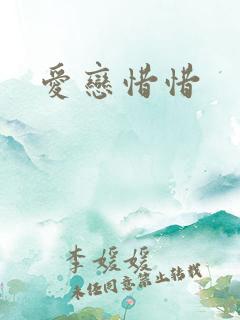 愛戀惜惜
李媛媛
未经同意禁止转载